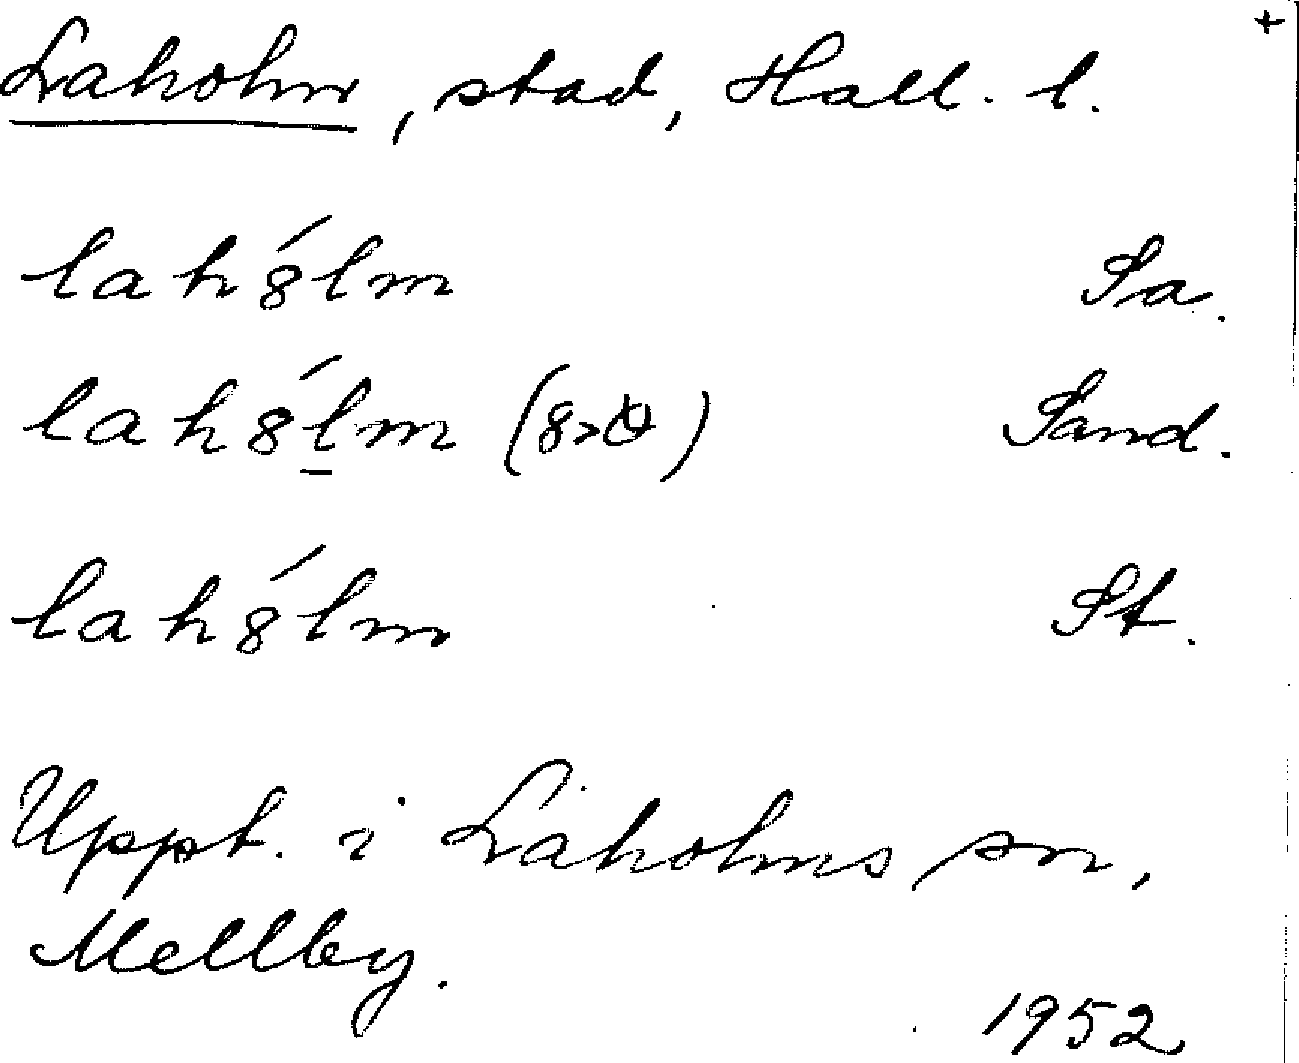 +
Laholm, stad, Hall. l.
lah8́lm Sa.
lah8́l̲m (8>ɵ) Sand.
lah8́lm St.
Uppt. i Laholms sn,
Mellby.
1952